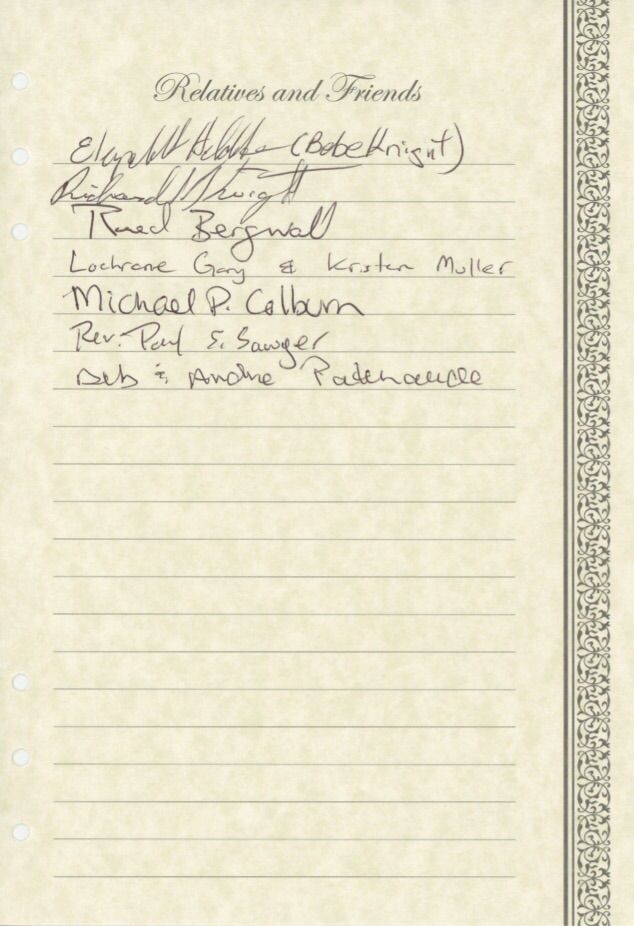 Relatives and Friends
Elizabeth (Bobe Knight)
Richard J Knight
Bergwall
Lochrane Gary & Kristen Muller
Michael P. Colburn
Rev. Paul S. Sawyer
Deb & Andre Patenaude